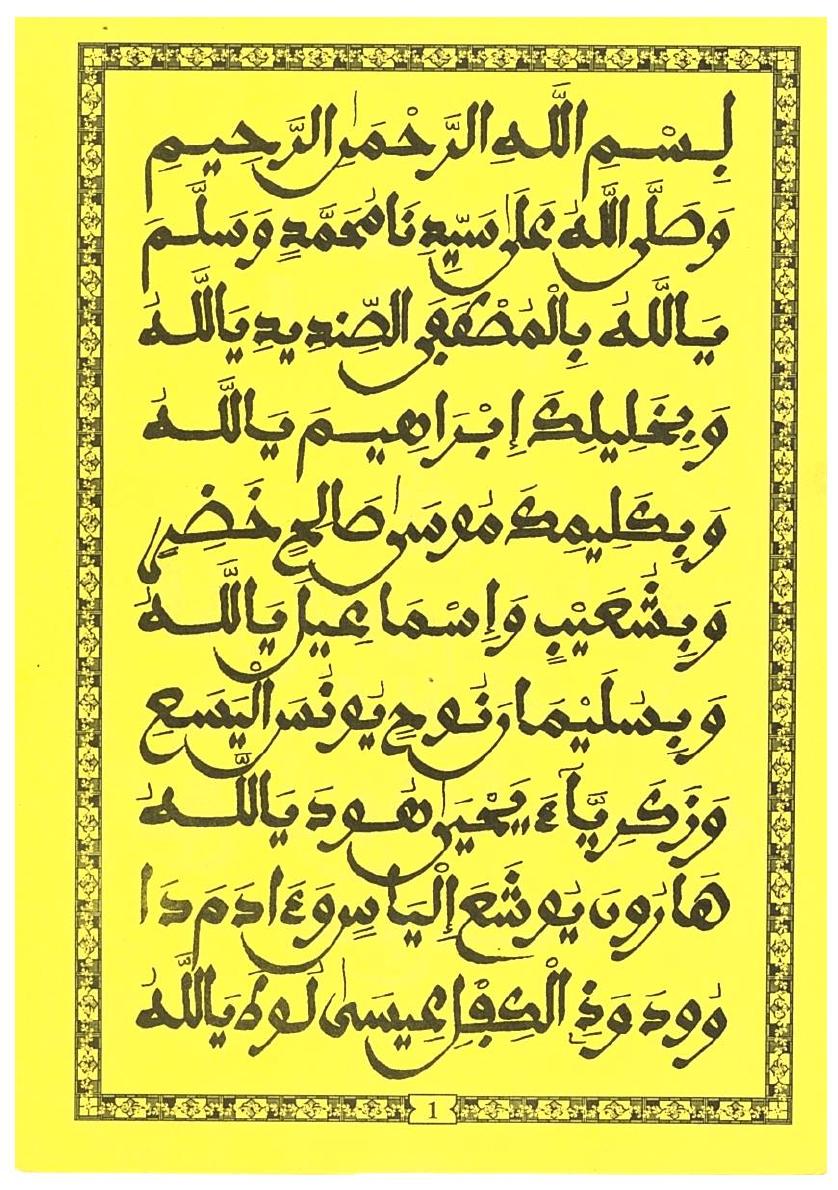 بِسْمِ اللَّهِ الرَّحْمَٰنِ الرَّحِيمِ
وَصَلَّى اللَّهُ عَلَى سَيِّدِنَا مُحَمَّدٍ وَسَلَّمَ
يَاللَّهُ بِالْمُصْطَفَى الصِّنْدِيدِ يَاللَّهُ
وَبِخَلِيلِكَ إِبْرَاهِيمَ يَاللَّهُ
وَبِكَلِيمِكَ مُوسَى صَالِحٍ خَضِرٍ
وَبِشُعَيْبٍ وَإِسْمَاعِيلَ يَاللَّهُ
وَبِسُلَيْمَانَ نُوحٍ يُونُسَ الْيَسَعِ
وَزَكَرِيَّآءَ يَحْيَى هُودَ يَاللَّهُ
هَارُونَ يُوشَعَ إِلْيَاسٍ وَءَادَمَ دَا
وُودَ وَذِ الْكِفْلِ عِيسَى لُوطَ يَاللَّهُ
1